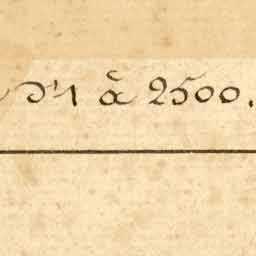 d'1 à 2500.